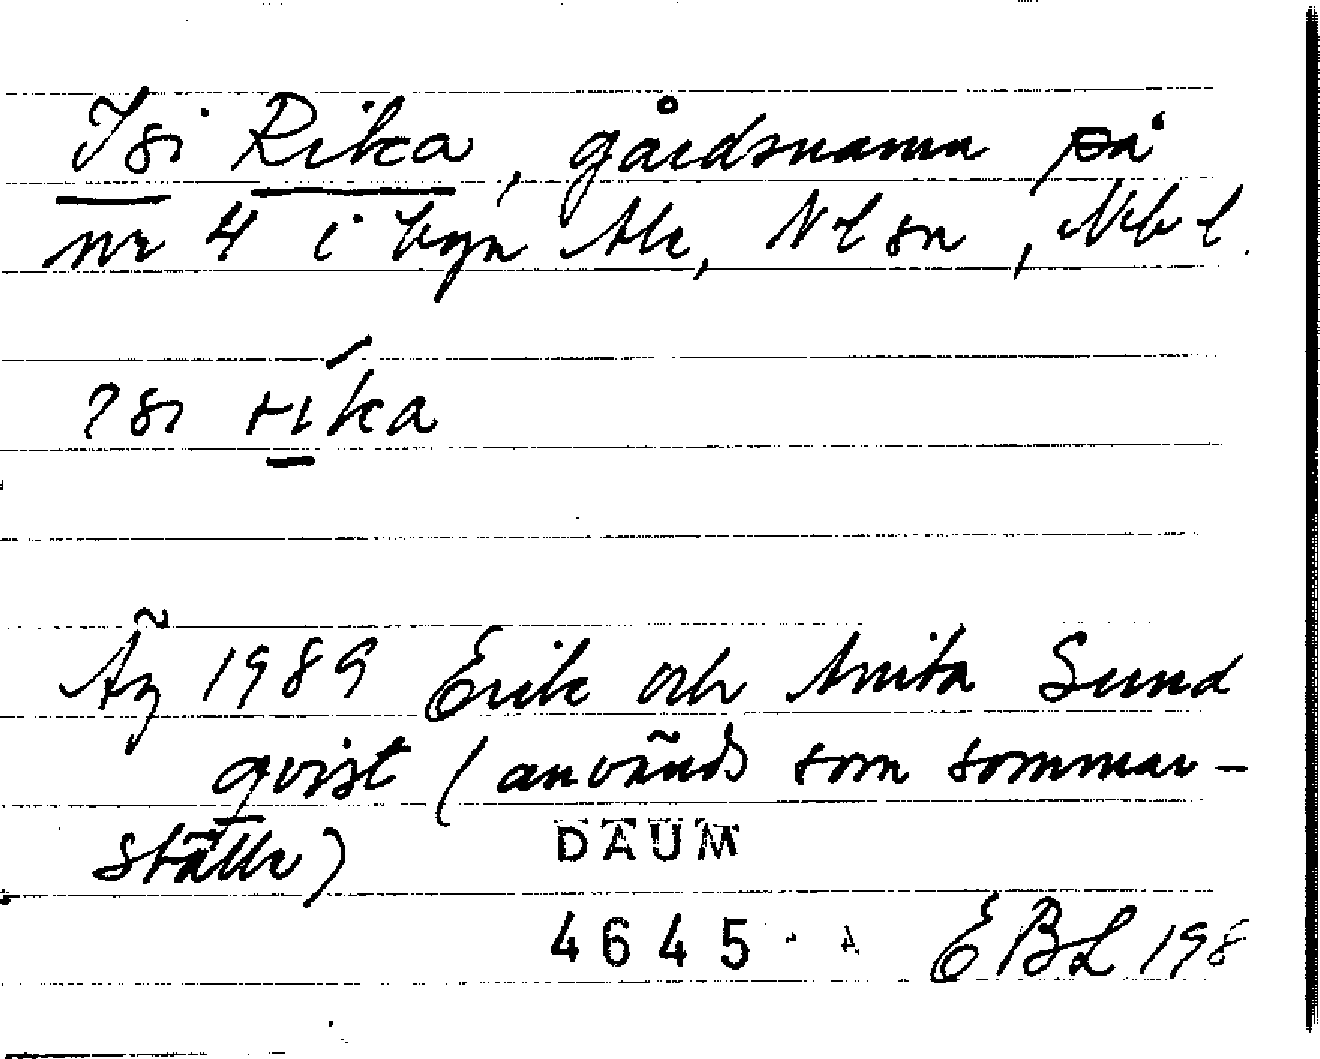 Isi Rika, gårdsnamn på
nr 4 i byn Ale, Nlsn, Nbl.
isi ríka
Äg 1989 Erik och Anita Sund
qvist (används som sommar-
ställe)
DAUM
4645 A EBL 198